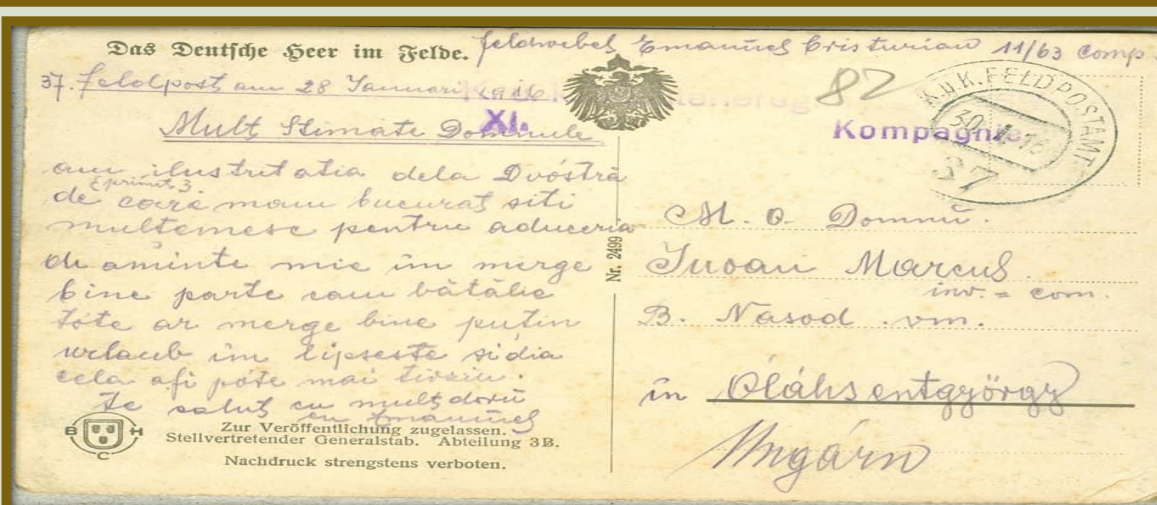 Das Deutsche Heer im Felde. Feldwebel Emanuel Cristurian 11/63 Comp.
37. Feldpost am 28 Januari 1916
Mult Stimate Domnule
XI.
82
Kompagnie
K.u.K. FELDPOSTAMT
37
am ilustritatia dela Dvóstrà
primit 3
de care mam bucurat siti
multemesc pentru aduceria
de aminte mie im merge
bine parte cam bàtàlie
tóte ar merge bine putin
urlaub im lipseste si dia
cela afi póte mai tirziu.
Te salut cu mult doru
Emanuel
Nr. 2499
M. O. Domnŭ.
Iuoan Marcus.
inv. = com.
B. Nasod . vm.
in Oláhsentgyörgy
Ungarn
B H
C
Zur Veröffentlichung zugelassen.
Stellvertretender Generalstab. Abteilung 3B.
Nachdruck strengstens verboten.